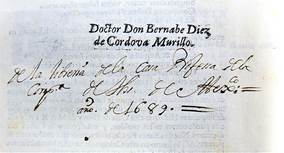 Doctor Don Bernabe Diez
de Cordova Murillo.
de la libreria de la Casa Profesa de la
Comp.ª de Jhs. de Mex.co
año. de 1689.